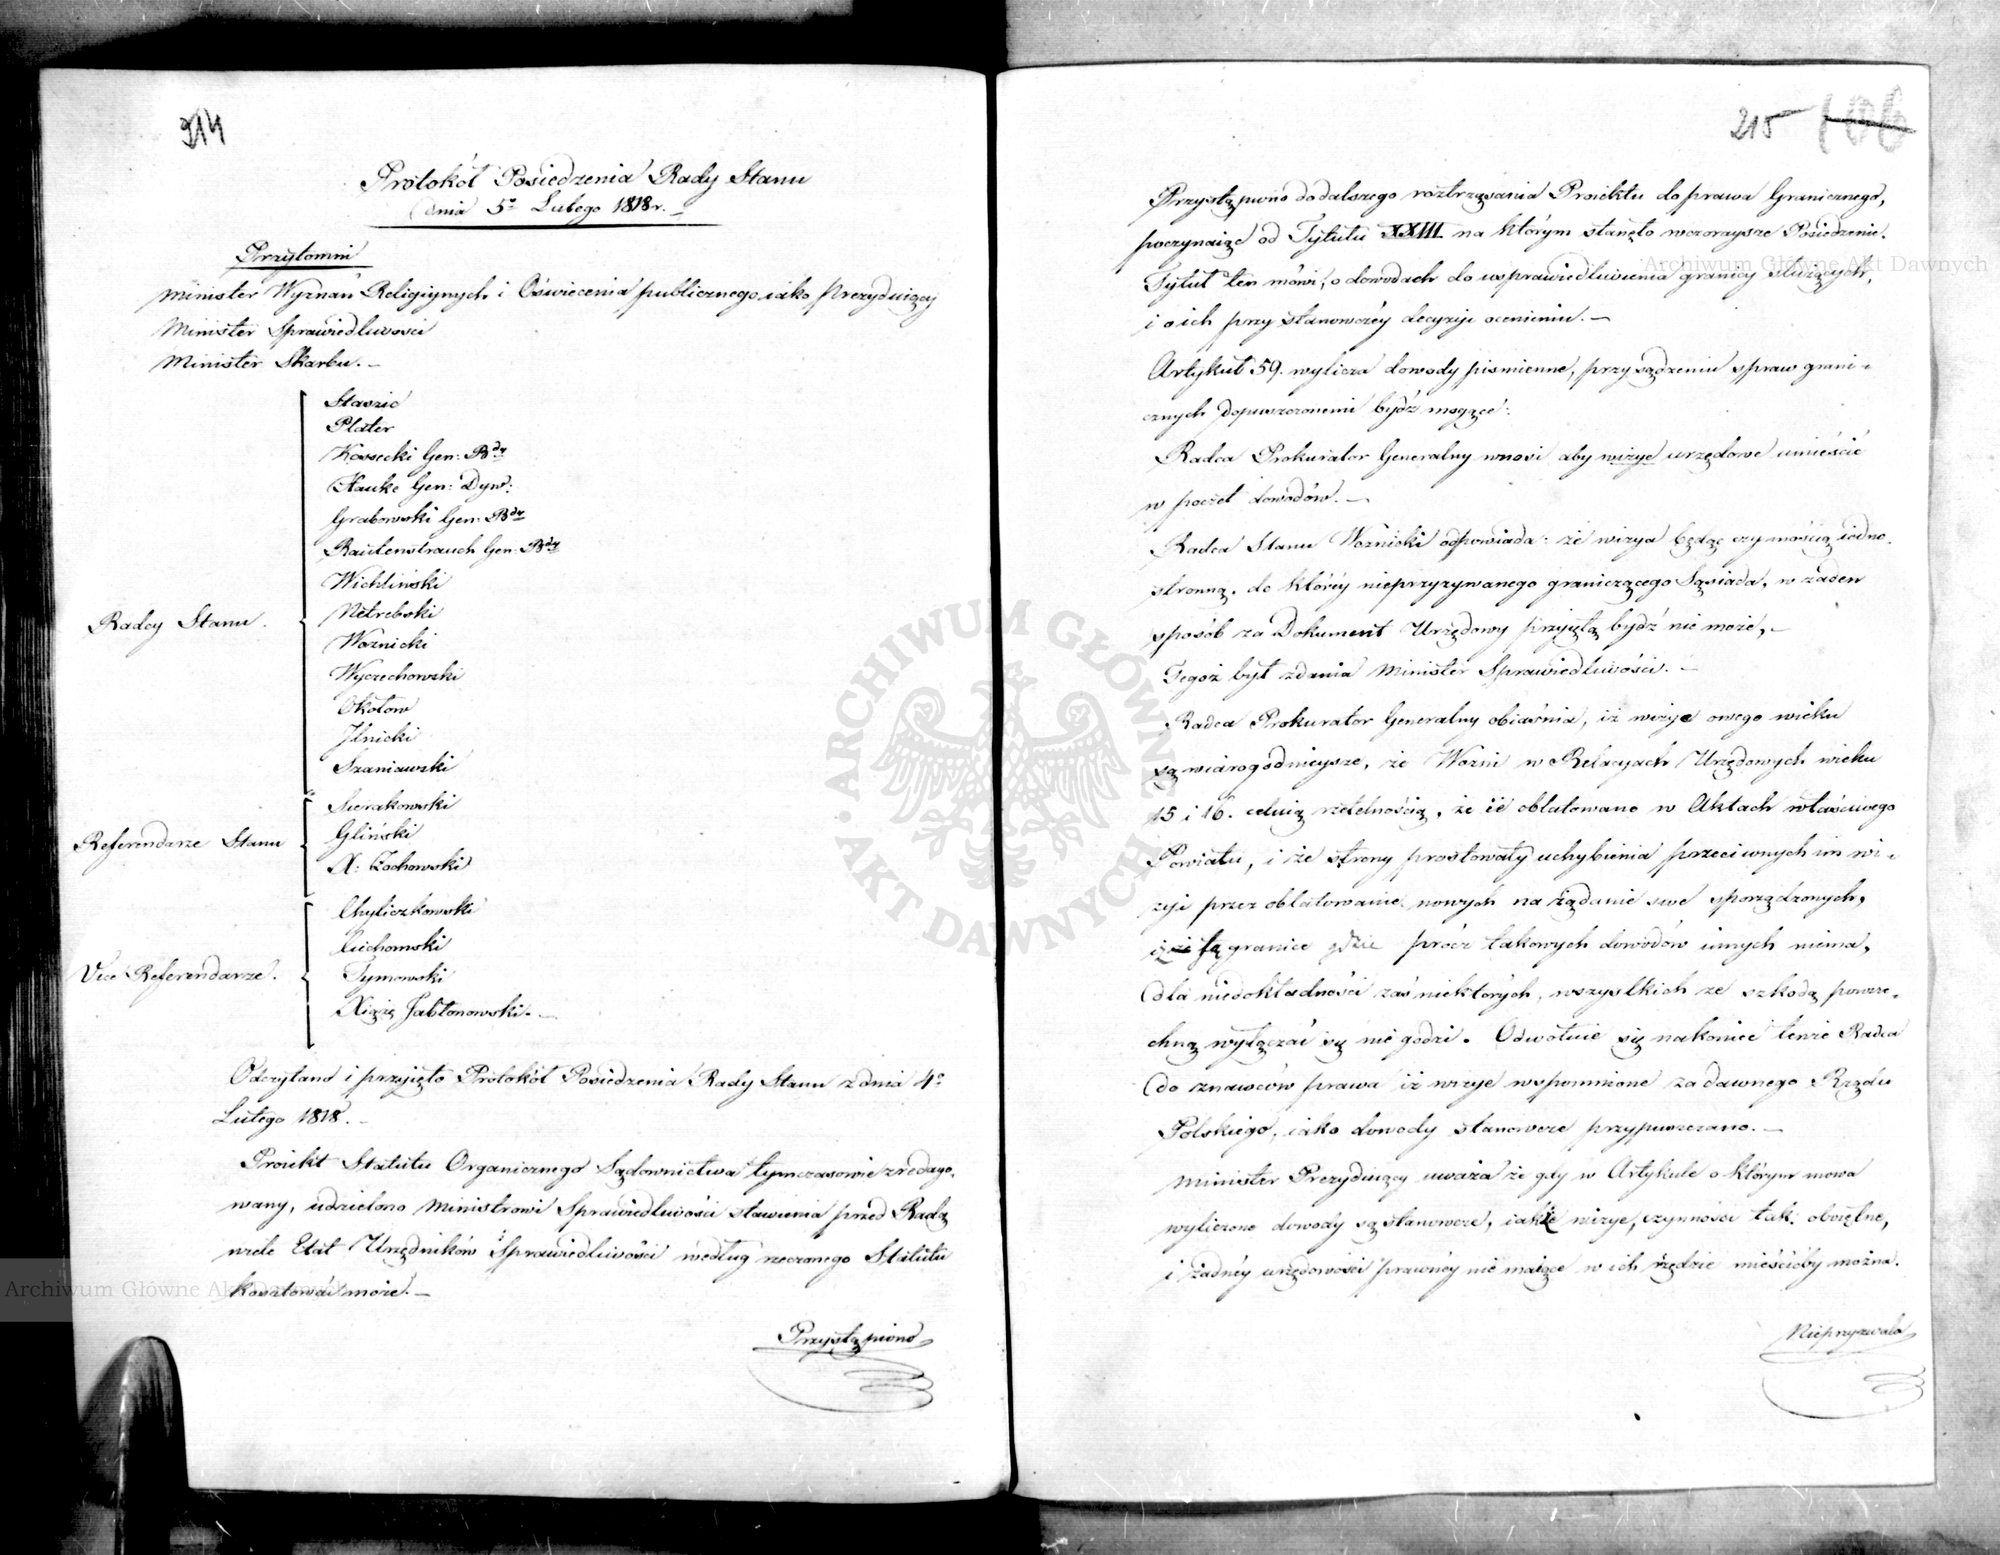 214
Protokół Posiedzenia Rady Stanu
dnia 5º Lutego 1818 r.
Przytomni
Minister Wyznań Religiynych i Oświecenia publicznego iako Prezyduiący
Minister Sprawiedliwości
Minister Skarbu. –
Radcy Stanu.
Staszic
Plater
Kossecki Gen: Bdy
Hauke Gen: Dyw:
Grabowski Gen: Bdy
Rautenstrauch Gen: Bdy
Wichliński
Netrebski
Woźnicki
Wyczechowski
Okołow
Ilnicki
Szaniawski
Referendarze Stanu
Sierakowski
Gliński
X: Żochowski
Vice Referendarze.
Chyliczkowski
Ciechomski
Tymowski
Xiążę Jabłonowski. –
Odczytano i przyięto Protokół Posiedzenia Rady Stanu z dnia 4º
Lutego 1818. –
Proiekt Statutu Organicznego Sądownictwa tymczasowie zredago-
wany, udzielono Ministrowi Sprawiedliwości stawienia przed Radą
wiele Etat Urzędników Sprawiedliwości według rzeczonego Statutu
kosztować może. –
Przystąpiono
215 106
Przystąpiono do dalszego roztrząsania Proiektu do prawa Granicznego,
poczynaiąc od Tytułu XXIII na którym stanęło wczoraysze Posiedzenie.
Tytuł ten mówi, o dowodach do usprawiedliwienia granicy służących,
i o ich przy stanowczéy decyzyi ocenieniu. –
Artykuł 59. wylicza dowody piśmienne, przy sądzeniu spraw grani-
cznych dopuszczonemi bydź mogące.
Radca Prokurator Generalny wnosi aby wizye urzędowe umieścić
w poczet dowodów. –
Radca Stanu Woźnicki odpowiada: że wizya będąc czynnością iedno-
stronną, do któréy nieprzyzywanego graniczącego Sąsiada, w żaden
sposób za Dokument Urzędowy przyiętą bydź nie może, –
Tegoż był zdania Minister Sprawiedliwości. –
Radca Prokurator Generalny obiaśnia, iż wizye owego wieku
są wiarogodnieysze, że Woźni w Relacyach Urzędowych wieku
15 i 16. celuią rzetelnością, że ie oblatowano w Aktach właściwego
Powiatu, i że strony prostowały uchybienia przeciwnych im wi-
zyi przez oblatowanie nowych na żądanie swe sporządzonych,
i że są granice gdzie prócz takowych dowodów innych niema,
dla niedokładności zaś niektórych, wszystkich ze szkodą powsze-
chną wyłączać się nie godzi. Odwołuie się nakoniec tenże Radca
do znawców prawa iż wizye wspomnione za dawnego Rządu
Polskiego, iako dowody stanowcze przypuszczano. –
Minister Prezyduiący uważa że gdy w Artykule o którym mowa
wyliczone dowody są stanowcze, iakże wizye, czynności tak oboiętne,
i żadnéy urzędowości prawnéy nie maiące w ich rzędzie mieścićby można.
Nieprzyzwala
ARCHIWUM GŁÓWNE AKT DAWNYCH
Archiwum Główne Akt Dawnych
Archiwum Główne Akt Dawnych